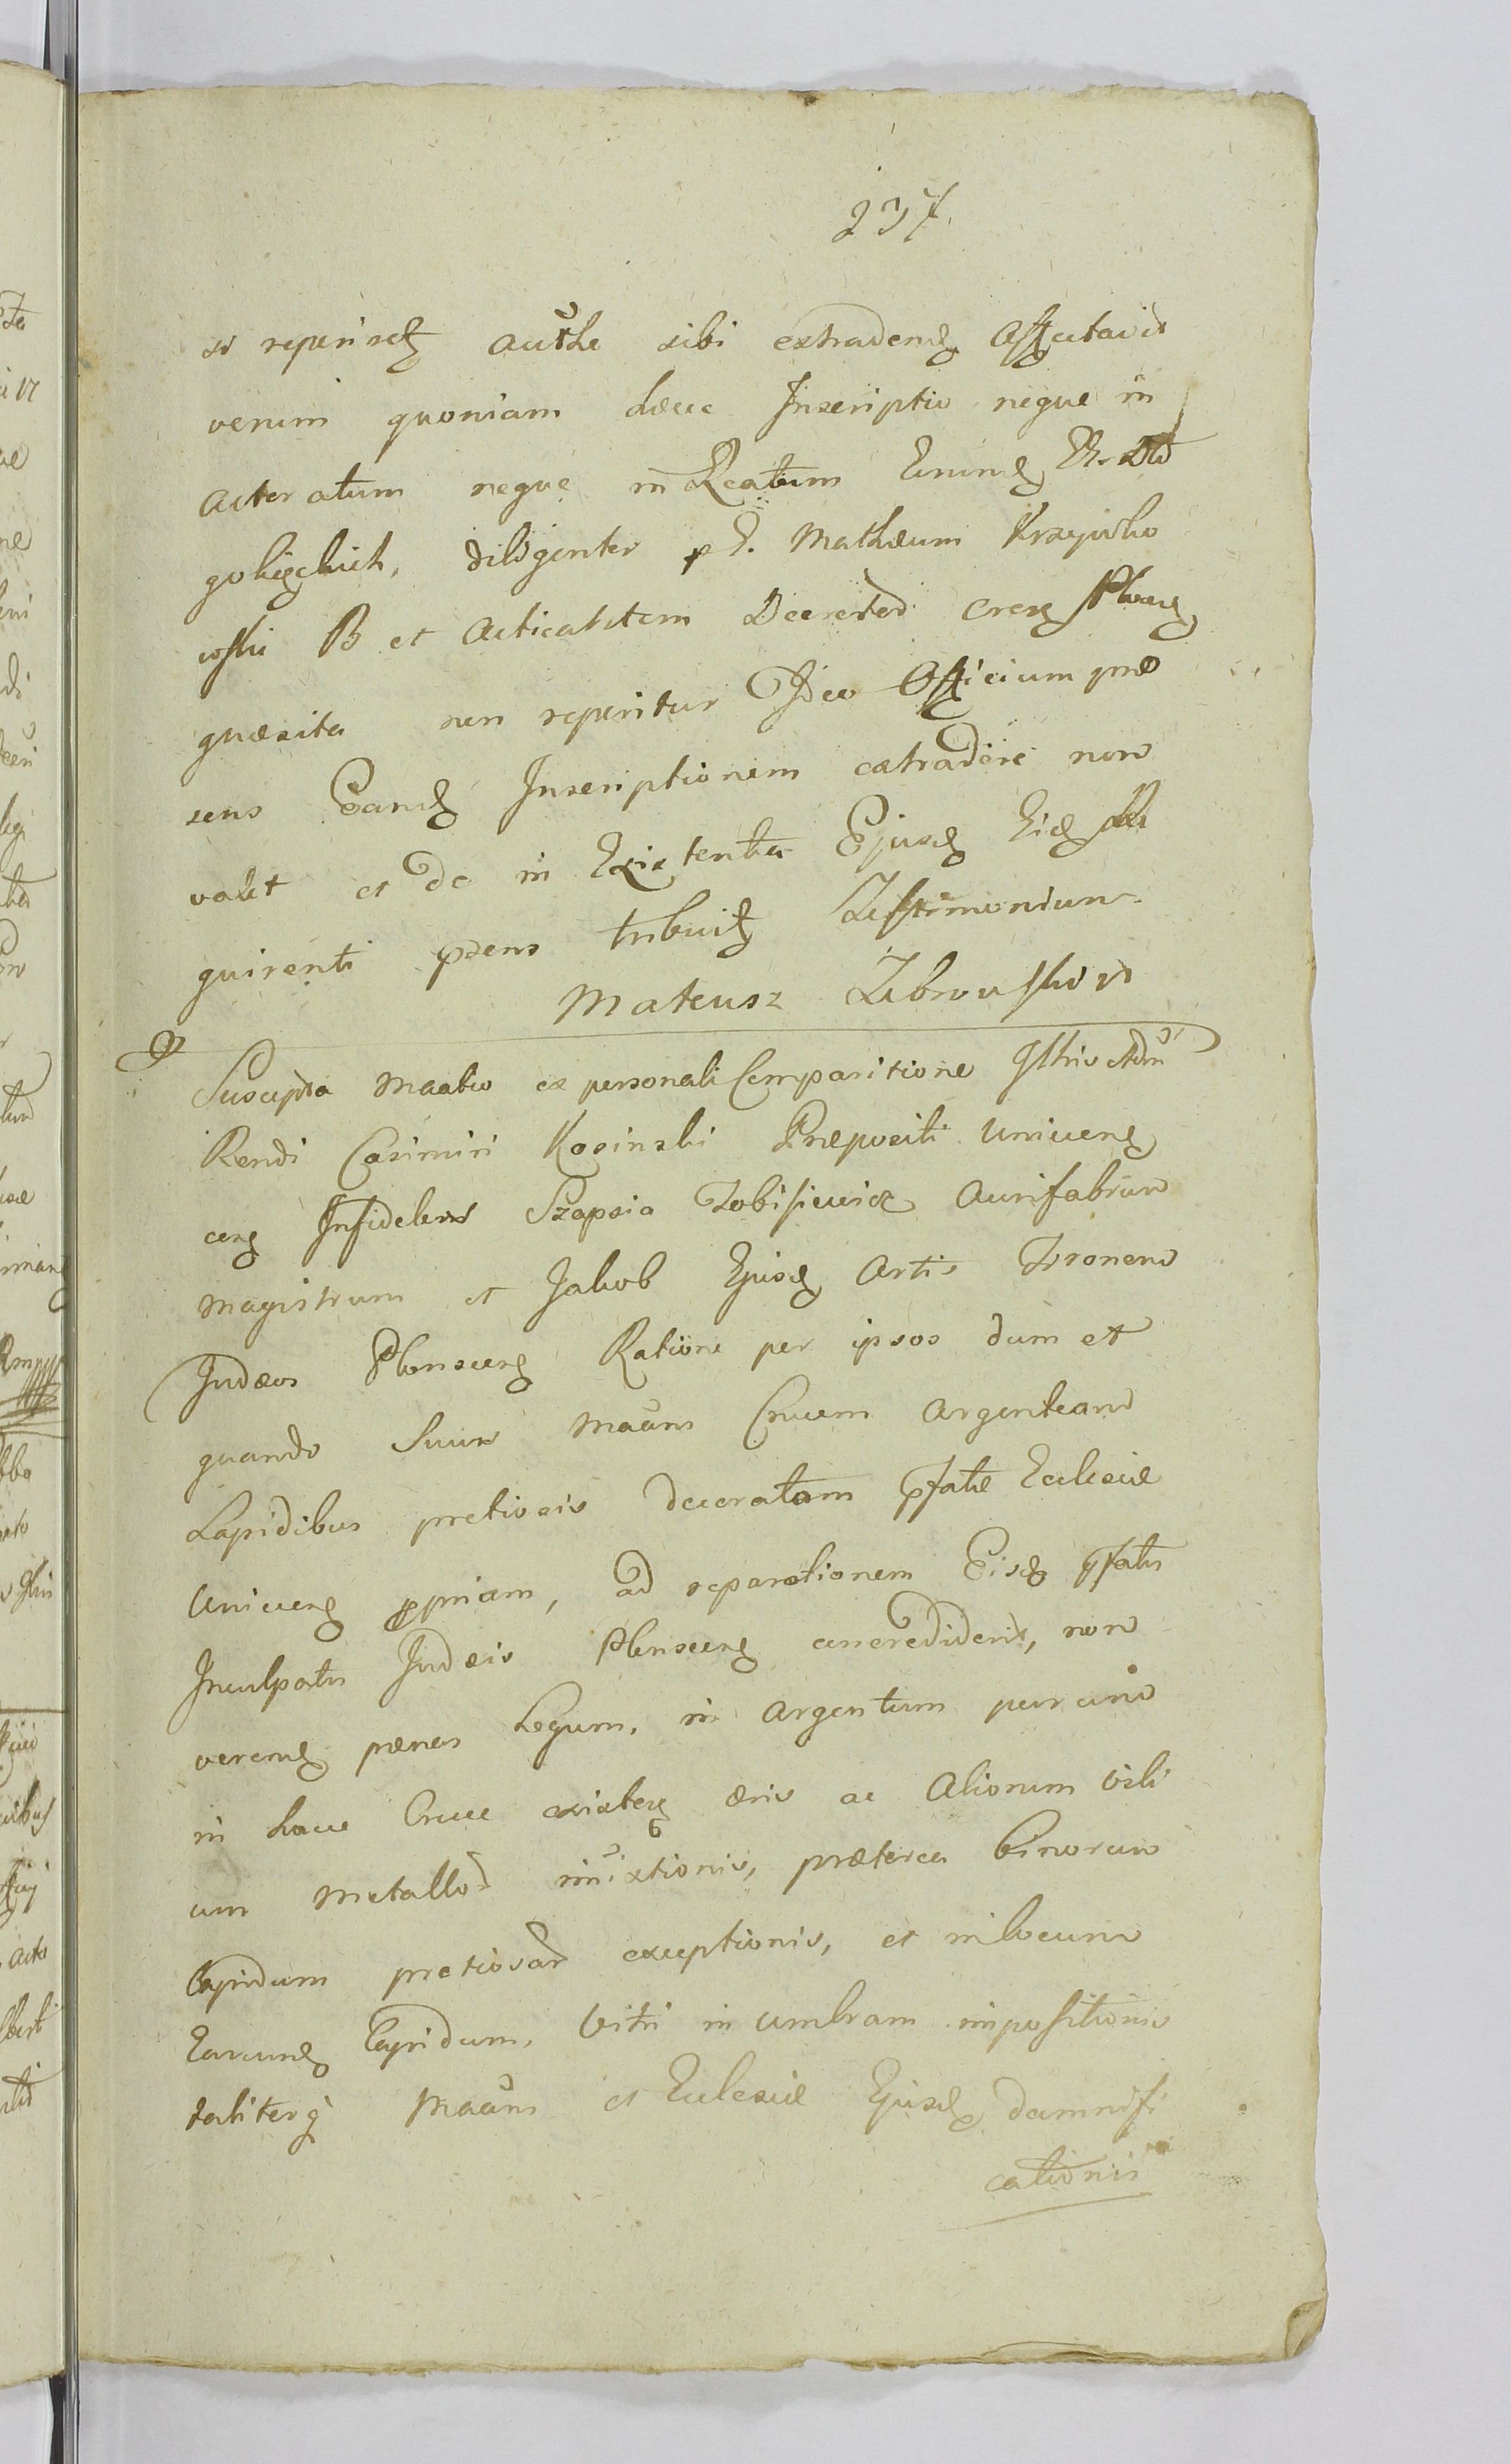 237.
si reperiretz authe sibi extradendz affectavit
verum quoniam haec Inscriptio neque in
acter atum neque in Reatum Eorundz
diligenter p G. Mathaeum Krzywko
wski B et acticatitem Decretor
quaesita non reperitur Ideo Officium prae
sens Eandz Inscriptionem extradere non
valet et de in Existentia Ejusdz Eidz Re
quirenti prens tribuitz Testimonium
Mateusz Zebrowski
Suscepta manlis ex personali Comparitione Ilthis Adm
Rendi Casimiri Kosinski Praepositi Uniecenz
cenz Infideles Szapsia Tobisiewicz Aurifabrum
magistrum et Jakob Ejusdz Artis Tironem
Judaeos Plonscenz Ratione per ipsos dum et
quando Suus maans Crucem argenteam
Lapidibus pretiosis decoratam pfatae Ecclesiae
Uniecenz ppriam, ad reparationem Eisdz pfatis
Inculpatis Judaeis Plonscenz concrediderit, non
verendz paenas Legum, in argentum purum
in hacce Cruce existenz aeris ac aliorum vili
um metallor imixtionis, praeterea binorum
Lapidum pretiosar exceptionis, et in locum
Earundz Lapidum, vitri in umbram impositionis
taliterq maans et Ecclesiae Ejusdz damnifi
cationis